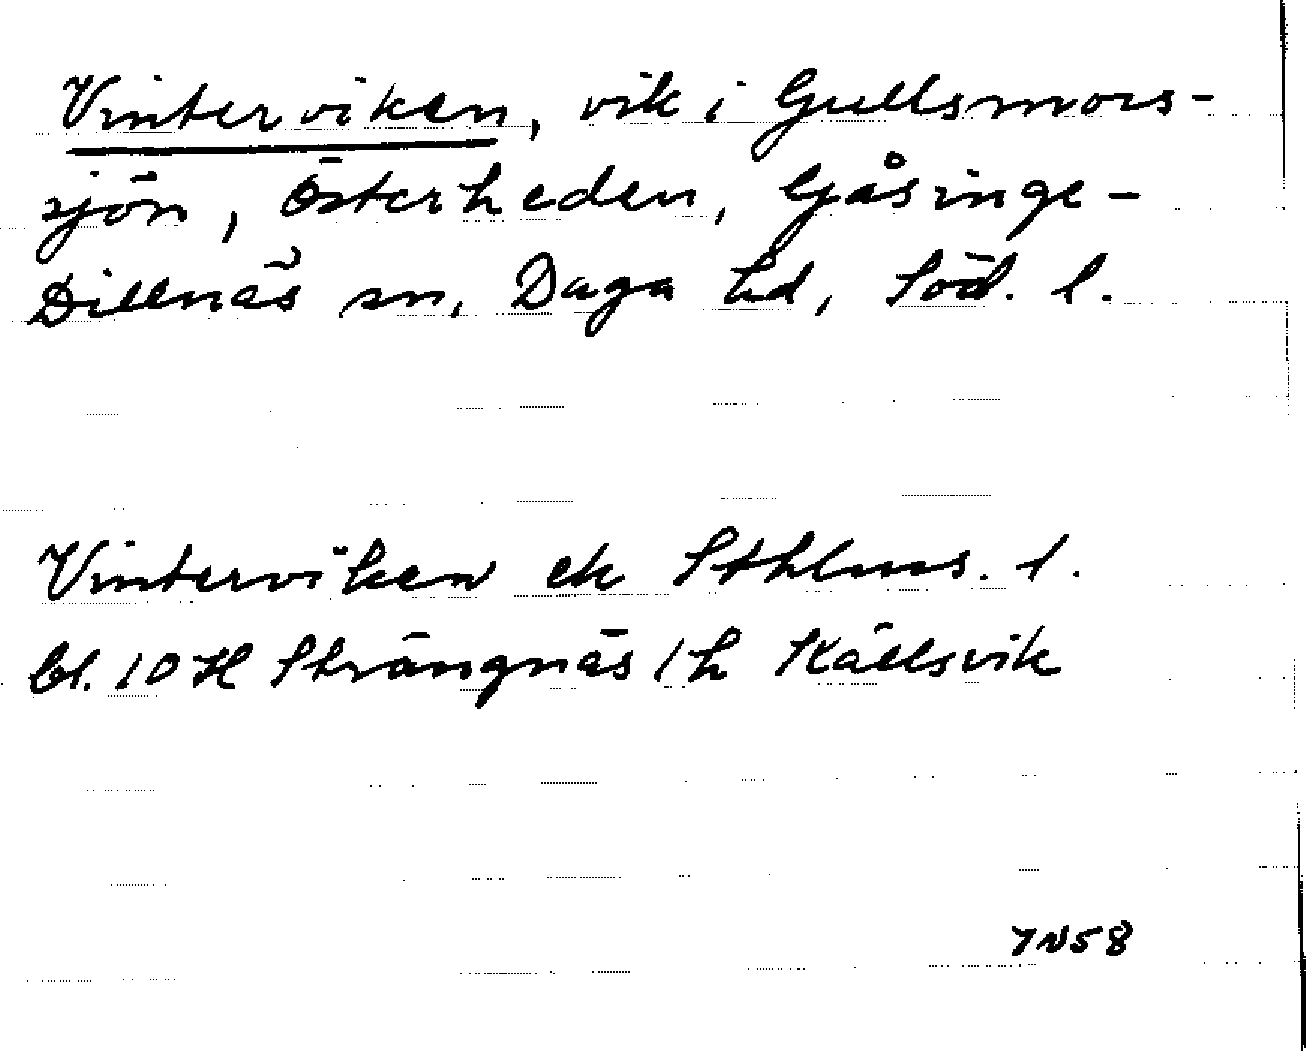 Vinterviken, vik i Gullsmors-
sjön, Österheden, Gåsinge-
Dillnäs sn, Daga hd, Söd. l.
Vinterviken ek Sthlms. l.
bl. 10 H Strängnäs 1h Källsvik
7N58